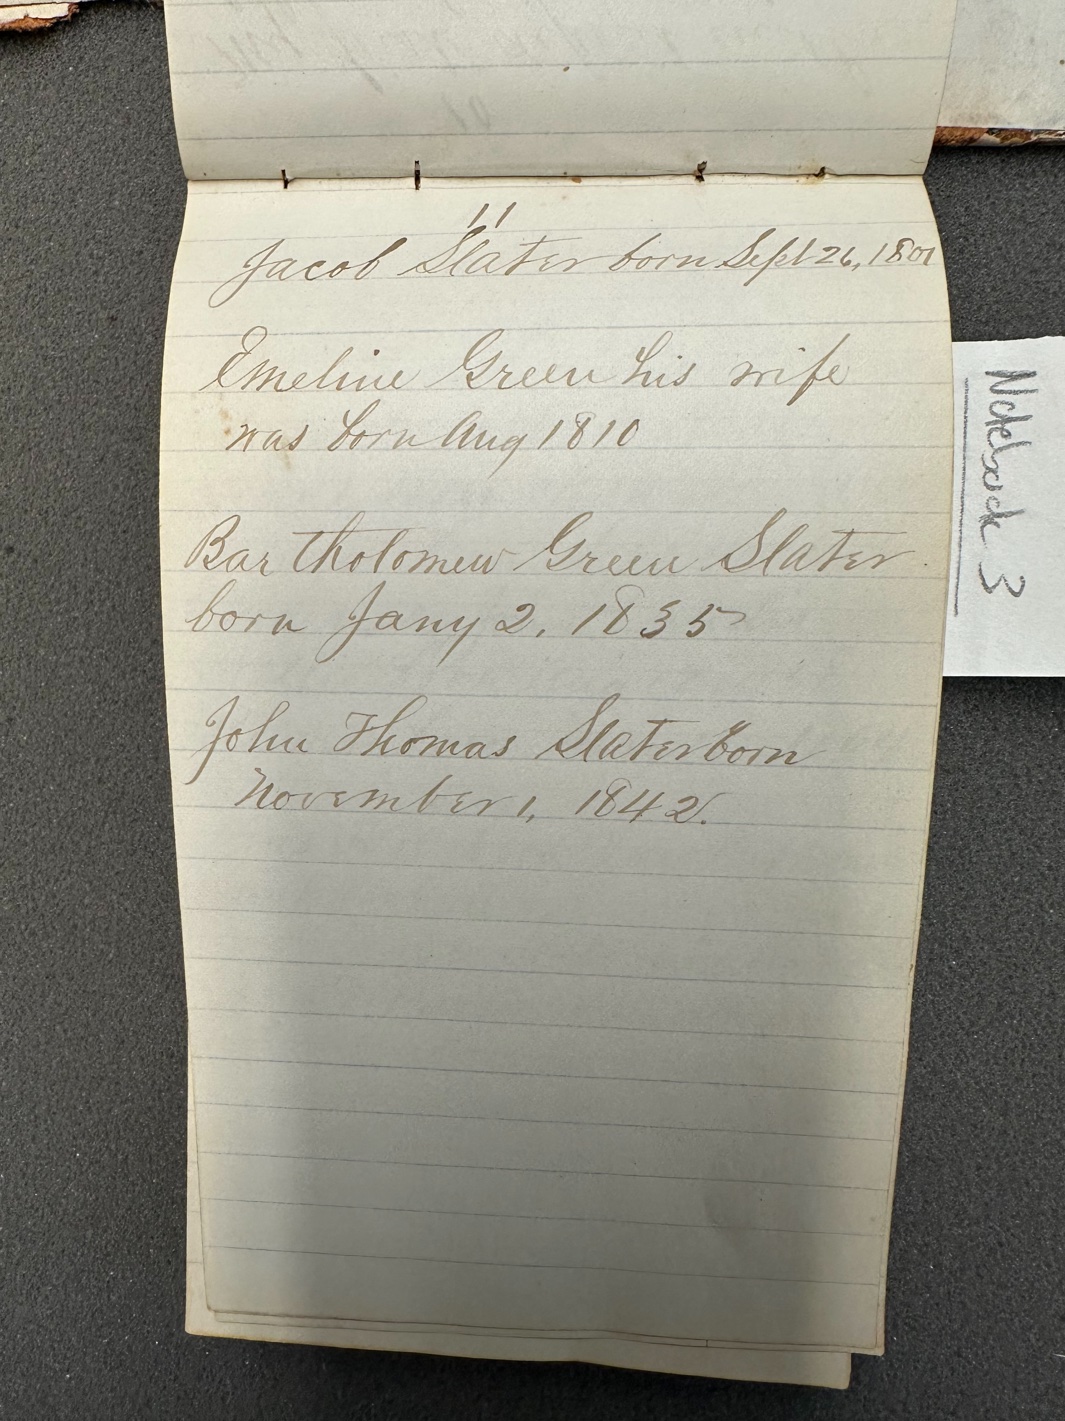 11
Jacob Slater born Sept 26, 1801
Emeline Green his wife
was born Aug 1810
Bartholomew Green Slater
born Jany 2, 1835
John Thomas Slater born
November 1, 1842.
Notebook 3